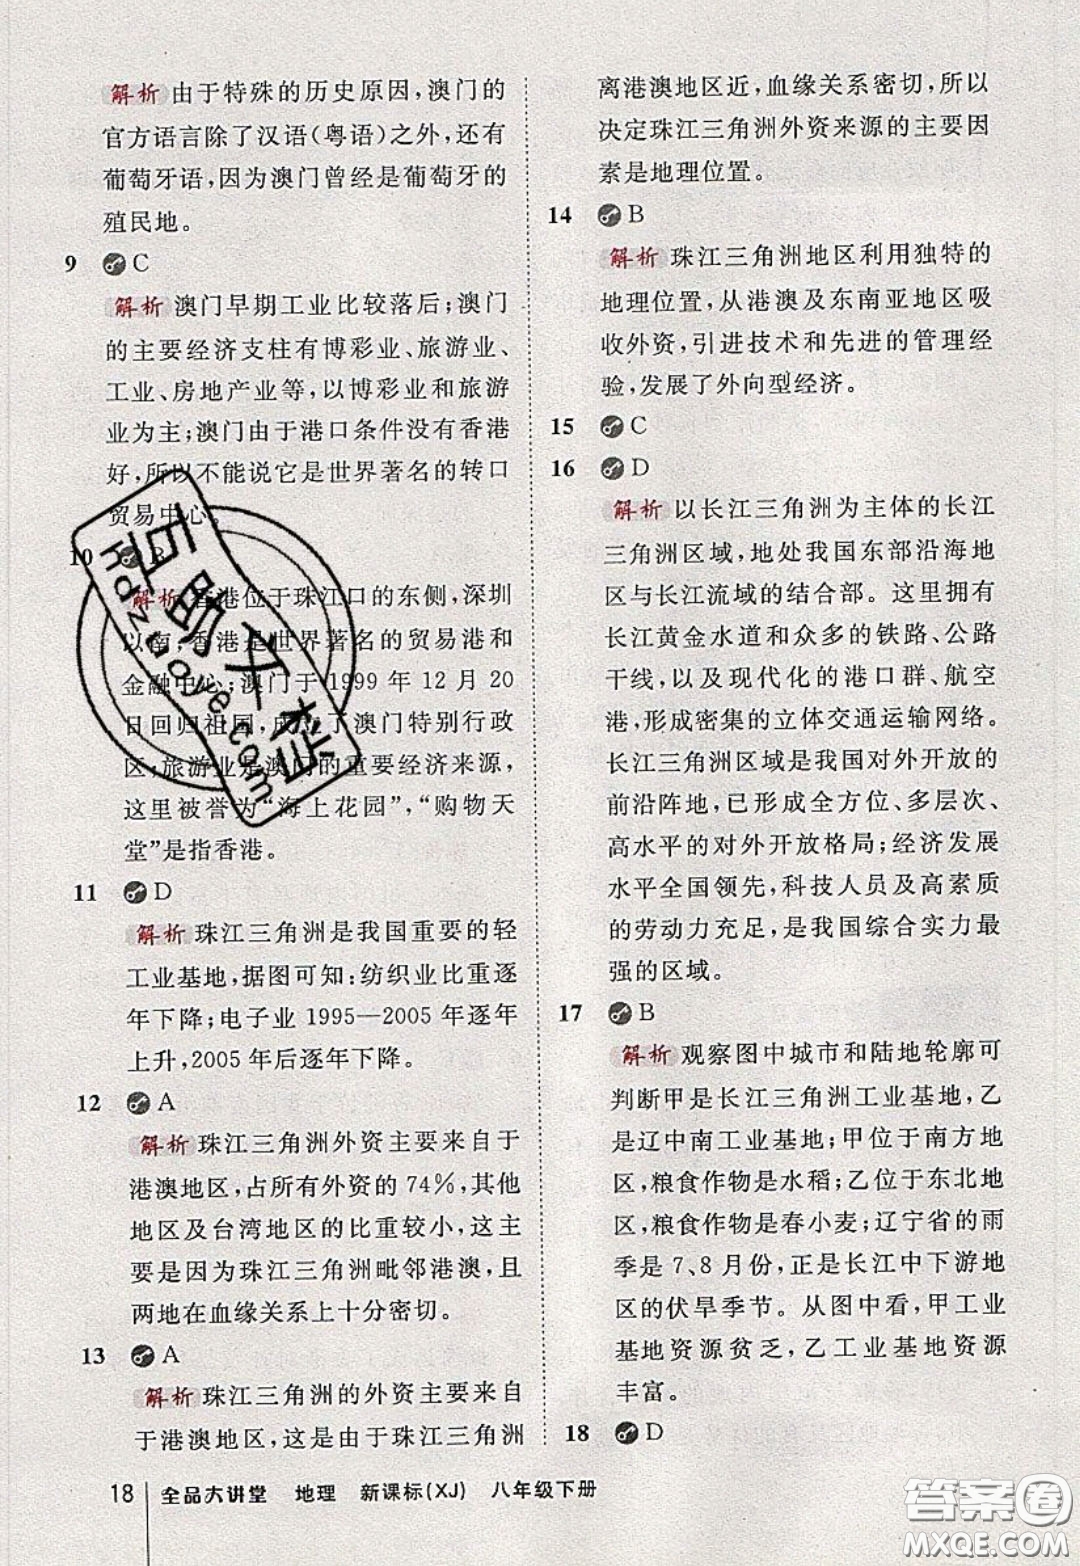 解析 由于特殊的历史原因,澳门的
官方语言除了汉语(粤语)之外,还有
葡萄牙语,因为澳门曾经是葡萄牙的
殖民地。
9 C
解析 澳门早期工业比较落后;澳门
的主要经济支柱有博彩业、旅游业、
工业、房地产业等,以博彩业和旅游
业为主;澳门由于港口条件没有香港
好,所以不能说它是世界著名的转口
贸易中心。
10 B
解析 香港位于珠江口的东侧,深圳
以南;香港是世界著名的贸易港和
金融中心;澳门于1999年12月20
日回归祖国,成立了澳门特别行政
区;旅游业是澳门的重要经济来源,
这里被誉为“海上花园”,“购物天
堂”是指香港。
11 D
解析 珠江三角洲是我国重要的轻
工业基地,据图可知:纺织业比重逐
年下降;电子业1995—2005年逐年
上升,2005年后逐年下降。
12 A
解析 珠江三角洲外资主要来自于
港澳地区,占所有外资的74%,其他
地区及台湾地区的比重较小,这主
要是因为珠江三角洲毗邻港澳,且
两地在血缘关系上十分密切。
13 A
解析 珠江三角洲的外资主要来自
于港澳地区,这是由于珠江三角洲
离港澳地区近,血缘关系密切,所以
决定珠江三角洲外资来源的主要因
素是地理位置。
14 B
解析 珠江三角洲地区利用独特的
地理位置,从港澳及东南亚地区吸
收外资,引进技术和先进的管理经
验,发展了外向型经济。
15 C
16 D
解析 以长江三角洲为主体的长江
三角洲区域,地处我国东部沿海地
区与长江流域的结合部。这里拥有
长江黄金水道和众多的铁路、公路
干线,以及现代化的港口群、航空
港,形成密集的立体交通运输网络。
长江三角洲区域是我国对外开放的
前沿阵地,已形成全方位、多层次、
高水平的对外开放格局;经济发展
水平全国领先,科技人员及高素质
的劳动力充足,是我国综合实力最
强的区域。
17 B
解析 观察图中城市和陆地轮廓可
判断甲是长江三角洲工业基地,乙
是辽中南工业基地;甲位于南方地
区,粮食作物是水稻;乙位于东北地
区,粮食作物是春小麦;辽宁省的雨
季是7、8月份,正是长江中下游地
区的伏旱季节。从图中看,甲工业
基地资源贫乏,乙工业基地资源
丰富。
18 D
18 全品大讲堂 地理 新课标(XJ) 八年级下册
百助文档
hdzuoye.com
答案圈
MXQE.COM